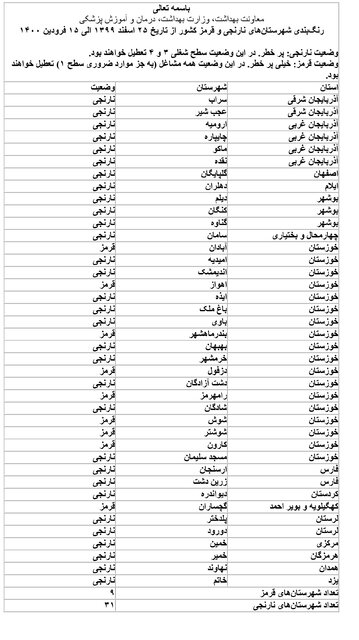 باسمه تعالی
معاونت بهداشت، وزارت بهداشت، درمان و آموزش پزشکی
رنگ‌بندی شهرستان‌های نارنجی و قرمز کشور از تاریخ ۲۵ اسفند ۱۳۹۹ الی ۱۵ فرودین ۱۴۰۰
وضعیت نارنجی: پر خطر. در این وضعیت سطح شغلی ۳ و ۴ تعطیل خواهند بود.
وضعیت قرمز: خیلی پر خطر. در این وضعیت همه مشاغل (به جز موارد ضروری سطح ۱) تعطیل خواهند
بود.
استان شهرستان وضعیت
آذربایجان شرقی سراب نارنجی
آذربایجان شرقی عجب شیر نارنجی
آذربایجان غربی ارومیه نارنجی
آذربایجان غربی چایپاره نارنجی
آذربایجان غربی ماکو نارنجی
آذربایجان غربی نقده نارنجی
اصفهان گلپایگان نارنجی
ایلام دهلران نارنجی
بوشهر دیلم نارنجی
بوشهر کنگان نارنجی
بوشهر گناوه نارنجی
چهارمحال و بختیاری سامان نارنجی
خوزستان آبادان قرمز
خوزستان امیدیه نارنجی
خوزستان اندیمشک نارنجی
خوزستان اهواز قرمز
خوزستان ایذه نارنجی
خوزستان باغ ملک نارنجی
خوزستان باوی نارنجی
خوزستان بندرماهشهر قرمز
خوزستان بهبهان نارنجی
خوزستان خرمشهر نارنجی
خوزستان دزفول قرمز
خوزستان دشت آزادگان نارنجی
خوزستان رامهرمز قرمز
خوزستان شادگان نارنجی
خوزستان شوش قرمز
خوزستان شوشتر قرمز
خوزستان کارون قرمز
خوزستان مسجد سلیمان نارنجی
فارس ارسنجان نارنجی
فارس زرین دشت نارنجی
کردستان دیواندره نارنجی
کهگیلویه و بویر احمد گچساران قرمز
لرستان پلدختر نارنجی
لرستان دورود نارنجی
مرکزی خمین نارنجی
هرمزگان خمیر نارنجی
همدان نهاوند نارنجی
یزد خاتم نارنجی
تعداد شهرستان‌های قرمز ۹
تعداد شهرستان‌های نارنجی ۳۱